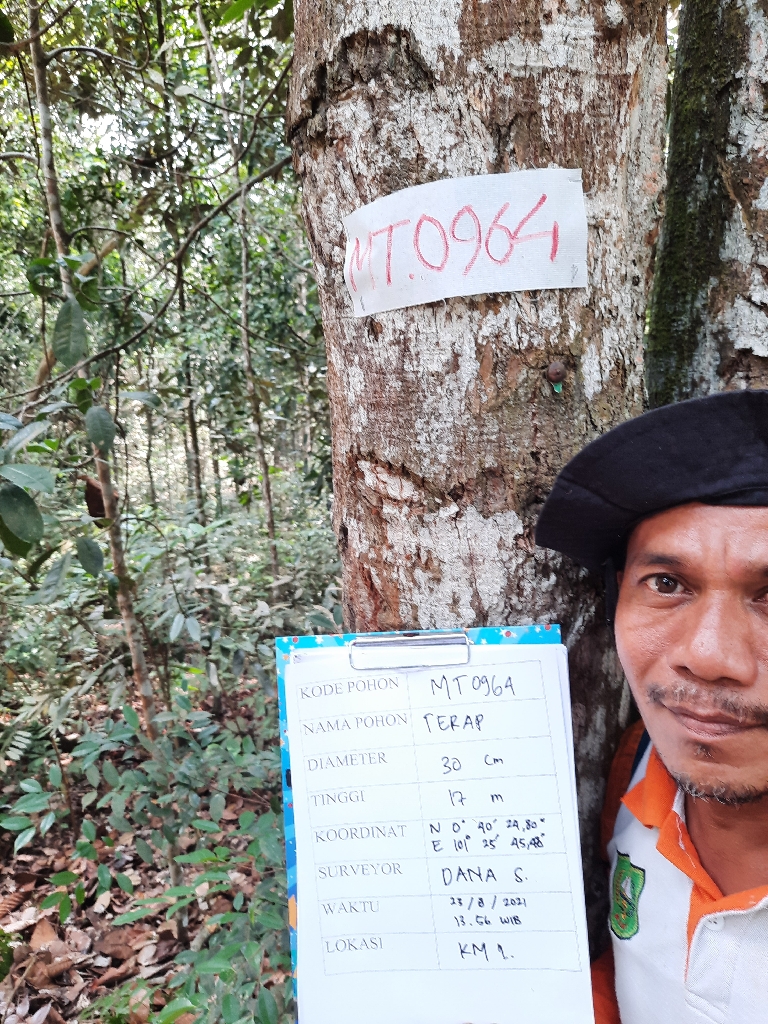 MT.0964
KODE POHON MT0964
NAMA POHON TERAP
DIAMETER 30 Cm
TINGGI 17 m
KOORDINAT N 0° 40' 24,80"
E 101° 25' 45,48"
SURVEYOR DANA S.
WAKTU 23/8/2021
13.56 WIB
LOKASI KM 1.